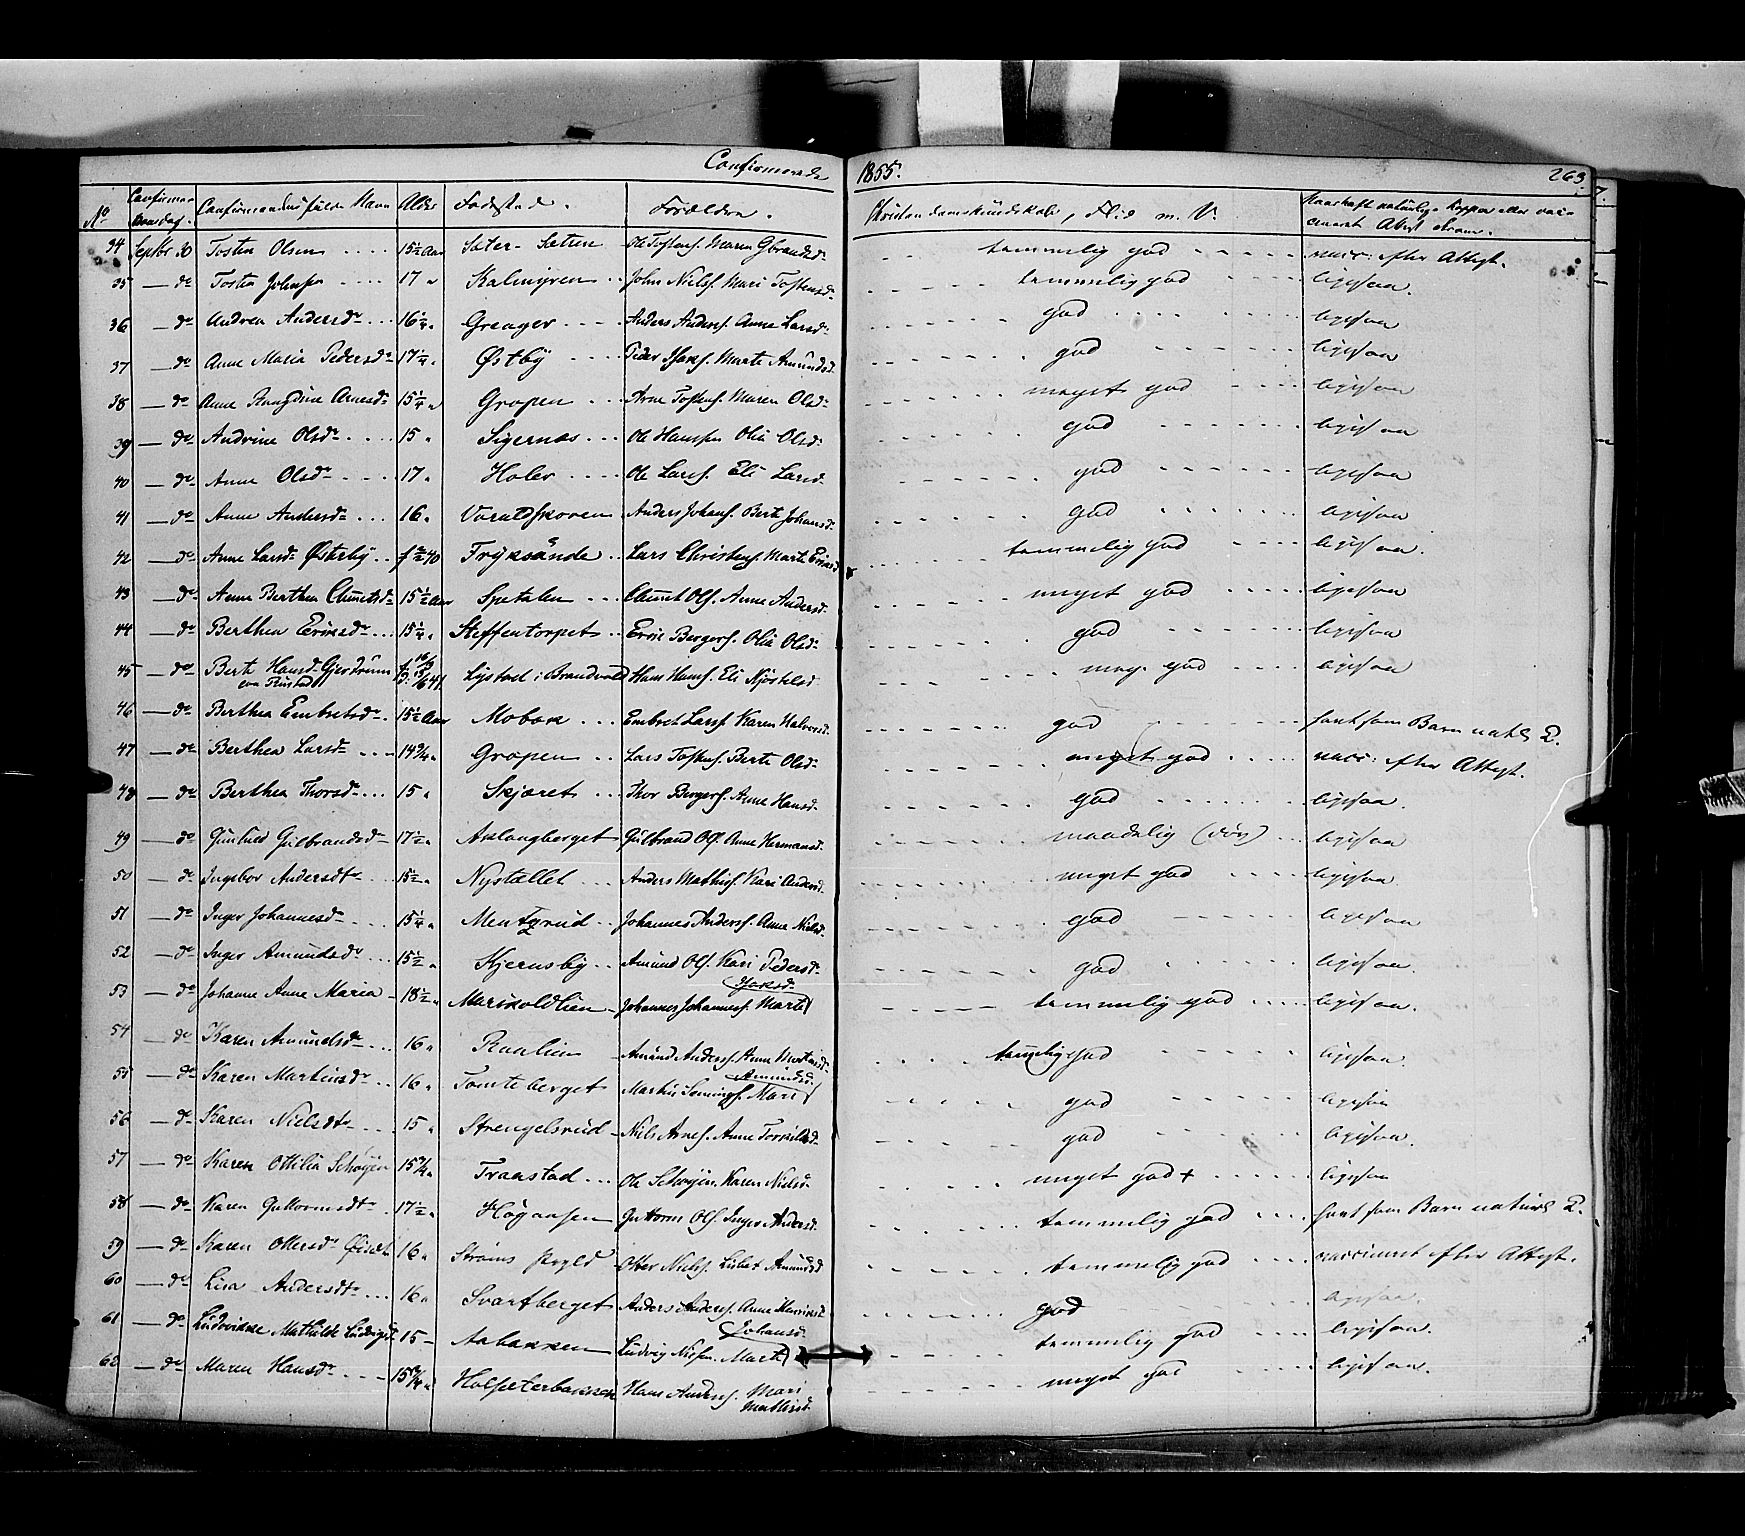 Confirmerede 1855. 263.
No Confirmationsdag. Confirmandens fulde Navn Alder Fødested. Forældre. Christendomskundskab, Flid m. V. Havt naturlige Kopper eller vaccineret Attest
34 Septbr 30 Tosten Olsen .... 15½ Aar Sæter-Sætren Ole Tostens. Maren Gbrandsd. - - temmelig god - - - - - vacc: efter Attest.
35 — do Tosten Johnsen .... 17 " Kalmyren .. John Niels. Mari Tostensd. - - - - - temmelig god - - - - ligesaa.
36 — do Andrea Andersdr ... 16¼ " Grenager ---- Anders Anders. Anne Larsd. - - - - - - god - - - - ligesaa
37 — do Anne Maria Pedersdr 17¼ " Østby ---- Peder Marte Amundsd. - - - - - . god - - - - - - ligesaa
38 — do Anne Arnesdr 15¼ " Gropen ... Arne Tostens. Maren Olsd. - - - - - - meget god - - - - ligesaa
39 — do Andrine Olsdr ..... 15 " Sigernæs ... Ole Hanssen Olia Olsd. - - - - - god - - - - - - ligesaa
40 — do Anne Olsdr ----- 17 " Holer ..... Ole Lars. Eli Larsd. - - - - - - god - - - - - - ligesaa
41 — do Anne Andersdr ... 16 " Varaldskoven Anders Johans. Berte Johansd. - - - - - - god - - - - - ligesaa
42 — do Anne Larsdr Østerby .. Fryksände .. Lars Christens. Marte Ersd. - - - - - temmelig god - - - - ligesaa.
43 — do Anne Berthea Clemetsdr 15½ Aar Spetalen ... Clemet Ols. Anne Andersd. - - - - - meget god - - - - - ligesaa
44 — do Berthea Eriksdr ... 15¼ " Steffentorpet .. Erik Bergers. Olia Olsd. - - - - - - god - - - - - ligesaa
45 — do Berte Hansd. Gjerdrum Lystad i Brandvold Hans Hans. Eli Kjøstelsd. - - - - . meg. god - - - - ligesaa
46 — do Berthea Embretsdr . 15½ Aar Mobæk ... Embret Lars. Karen Halvorsd. - - - - - - god - - - - - - havt som Barn natl. K.
47 — do Berthea Larsdr --- 14¾ " Gropen .. Lars Tostens. Berte Olsd. - - - - - meget god ..... vacc: efter Attest.
48 — do Berthea Thorsdr ... 15 " Skjæret ... Thor Bergers. Anne Hansd. - - - - - - god ...... ligesaa.
49 — do Gunhild Gulbrandsdr 17½ " Aslaugberget Gulbrand Ols. Anne Hermansd. - - - - - maadelig (døv) .. ligesaa
50 — do Ingebor Andersdtr ... 15½ " Nystællet ... Anders Mathis. Kari Andersd. - - - - - meget god - - - - - ligesaa.
51 — do Inger Johannesdr .... 15¼ " Mentzrud .. Johannes Anders. Anne Nielsd. - - - - - . god - - - - - - ligesaa
52 — do Inger Amundsdr .... 15½ " Kjernsby .. Amund Ols. Kari Pedersd. - - - - - - god - - - - - ligesaa.
53 — do Johanne Anne Maria - 18½ " Marikoldlien - Johannes Johannes. Marte - - - - temmelig god ..... ligesaa.
54 — do Karen Amundsdr ... 16 " Raalien - Amund Anders. Anne . . . temmelig god - - - - - ligesaa
55 — do Karen Martinsdr .. 16 " Tomteberget Martin Mari Amundsd. - - - - - god - - - - - ligesaa
56 — do Karen Nielsdtr .... 15 " Strengelsrud - Niels Arnes. Anne - - - - - god - - - - - ligesaa.
57 — do Karen Ottilia Schøyen 15¾ " Transtad ... Ole Schøyen. Karen Nielsd. - - - - meget god + ...... ligesaa
58 — do Karen Guttormsdtr . 17½ " Høgaasen Guttorm Ols. Inger Andersd. . . - - . temmelig god .... havt som Barn naturl. K.
59 — do Karen Ottersdr 16 " Strøms Otter Niels. Lisbet Amundsd - - - - - temmelig god .... vaccineret efter Attest.
60 — do Lisa Andersdtr .... 16 " Svartberget Anders Anders. Anne Henriksd. - - - - - god ligesaa.
61 — do Ludovikke Mathilde Ludvigsd. 15 - Aabakken Ludvig Marte Johansd. - - - - - temmelig god .... ligesaa.
62 — do Maren Hansdr --- 15¾ " Holsæterbakken Hans Anders. Mari Mathisd. - - - - - meget god - - - - - ligesaa.